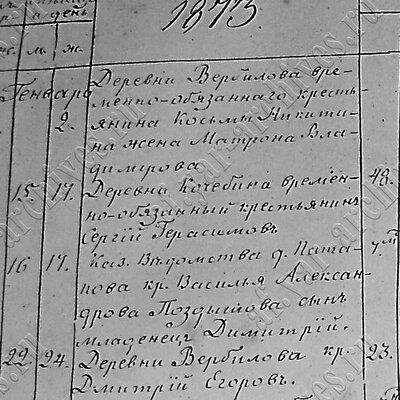 и день
1873.
м. ж.
Генваря
Деревни Вербилова вре-
менно-обязаннаго кресть-
2. янина Козьмы Никити-
на жена Матрона Вла-
димірова
15. 17. Деревни Кочебина времен- 48.
но-обязанный крестьянинъ
Сергій Герасимовъ
16 17. Каз. Вѣдомства д. Пата- 7 м
кова кр. Василья Алексан-
дрова Поздышова сынъ
младенецъ Димитрій.
22. 24. Деревни Вербилова кр. 23.
Дмитрій Егоровъ.